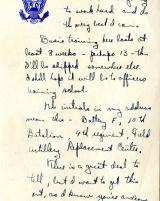 to work hard and do
the very best I can.
Basic training here lasts at
least 8 weeks - perhaps 13 - then
I'll be shipped somewhere else.
I still hope it will be to officers
training school.
The initials in my address
mean this - Battery , 10th
Battalion, 4th regiment, Field
Artillery Replacement Center.
There is a great deal to
tell, but I want to get this
out, so